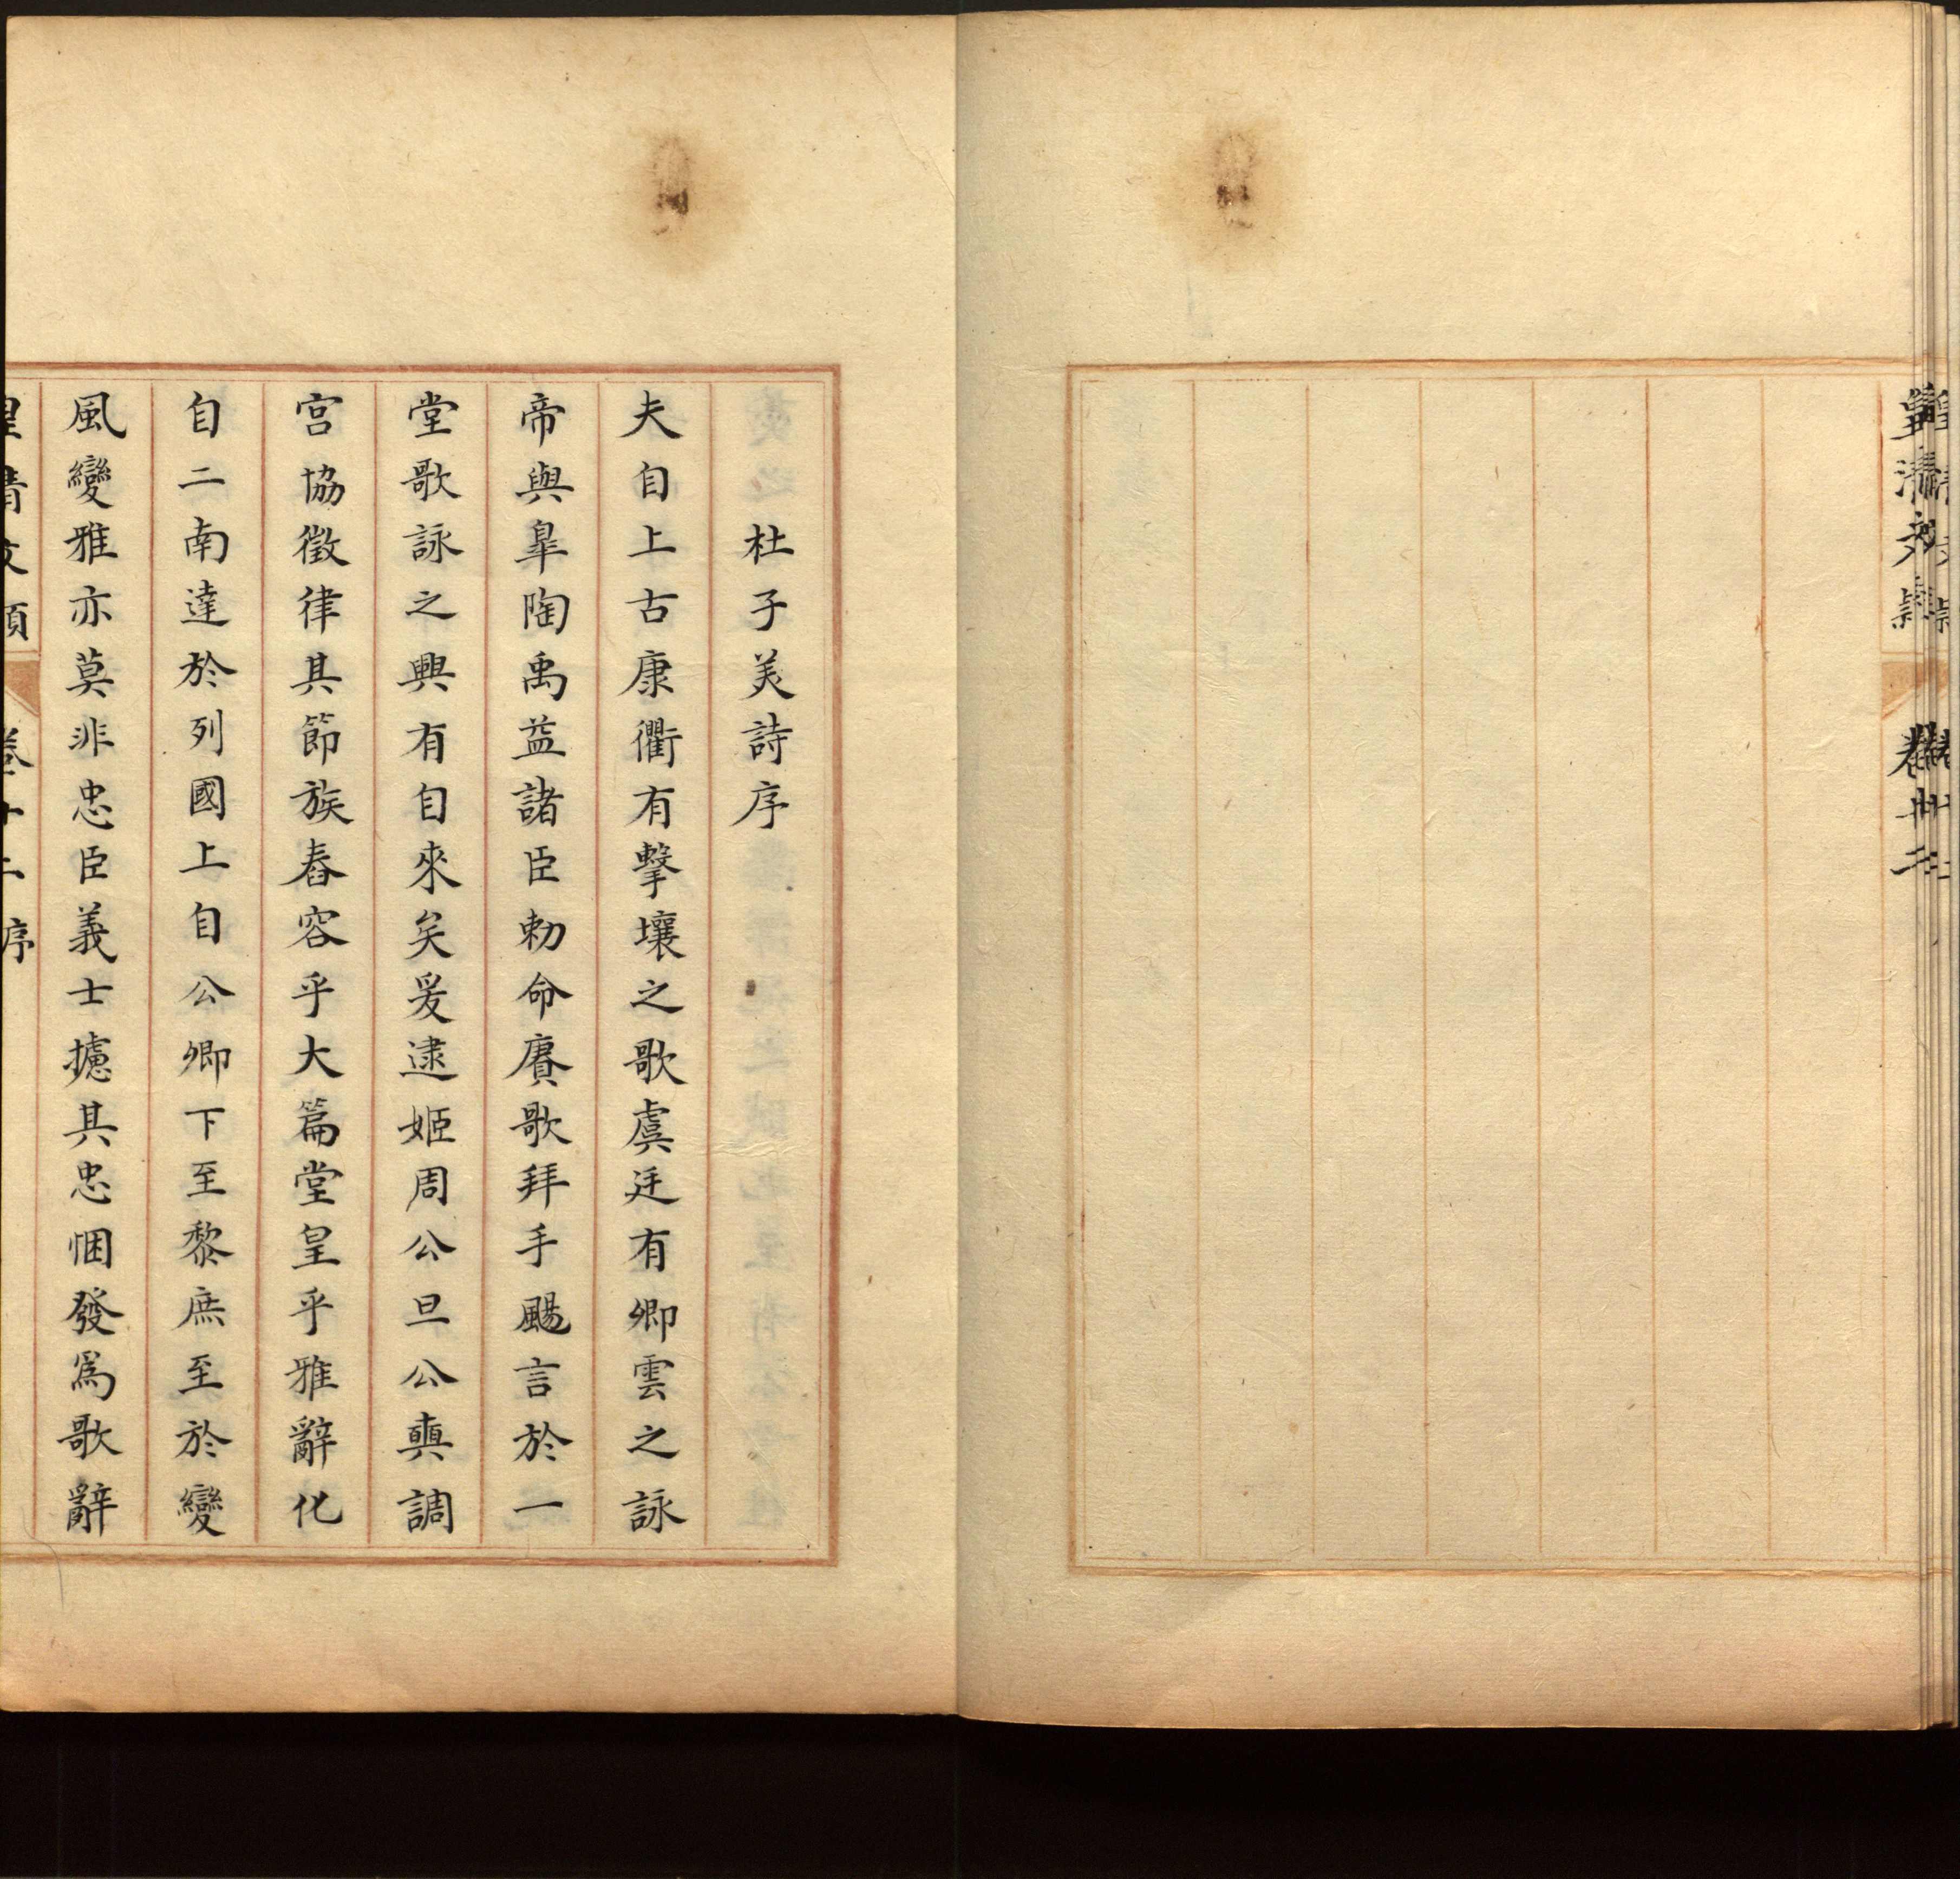 杜子美詩序
夫自上古康衢有擊壤之歌虞廷有卿雲之詠
帝與臯陶禹益諸臣勅命賡歌拜手颺言於一
堂歌詠之興有自來矣爰逮姬周公旦公奭調
宮協徵律其節族舂容乎大篇堂皇乎雅辭化
自二南達於列國上自公卿下至黎庶至於變
風變雅亦莫非忠臣義士攄其忠悃發爲歌辭
皇清文穎 卷十二 序